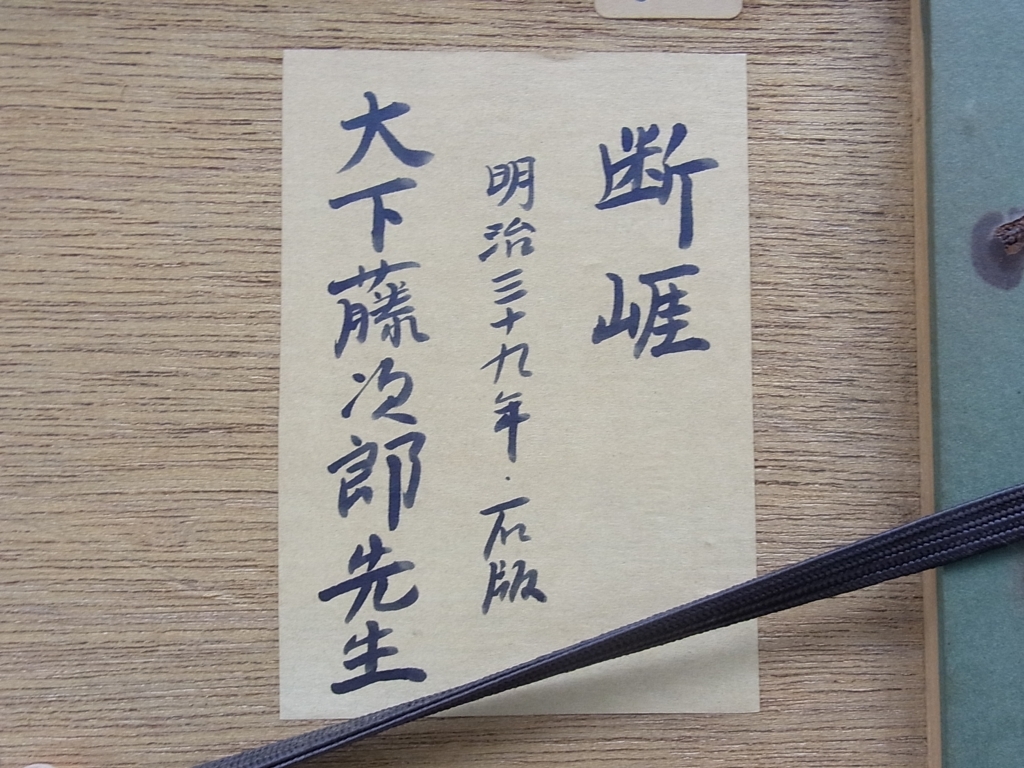 断崕
明治三十九年・石版
大下藤次郎先生